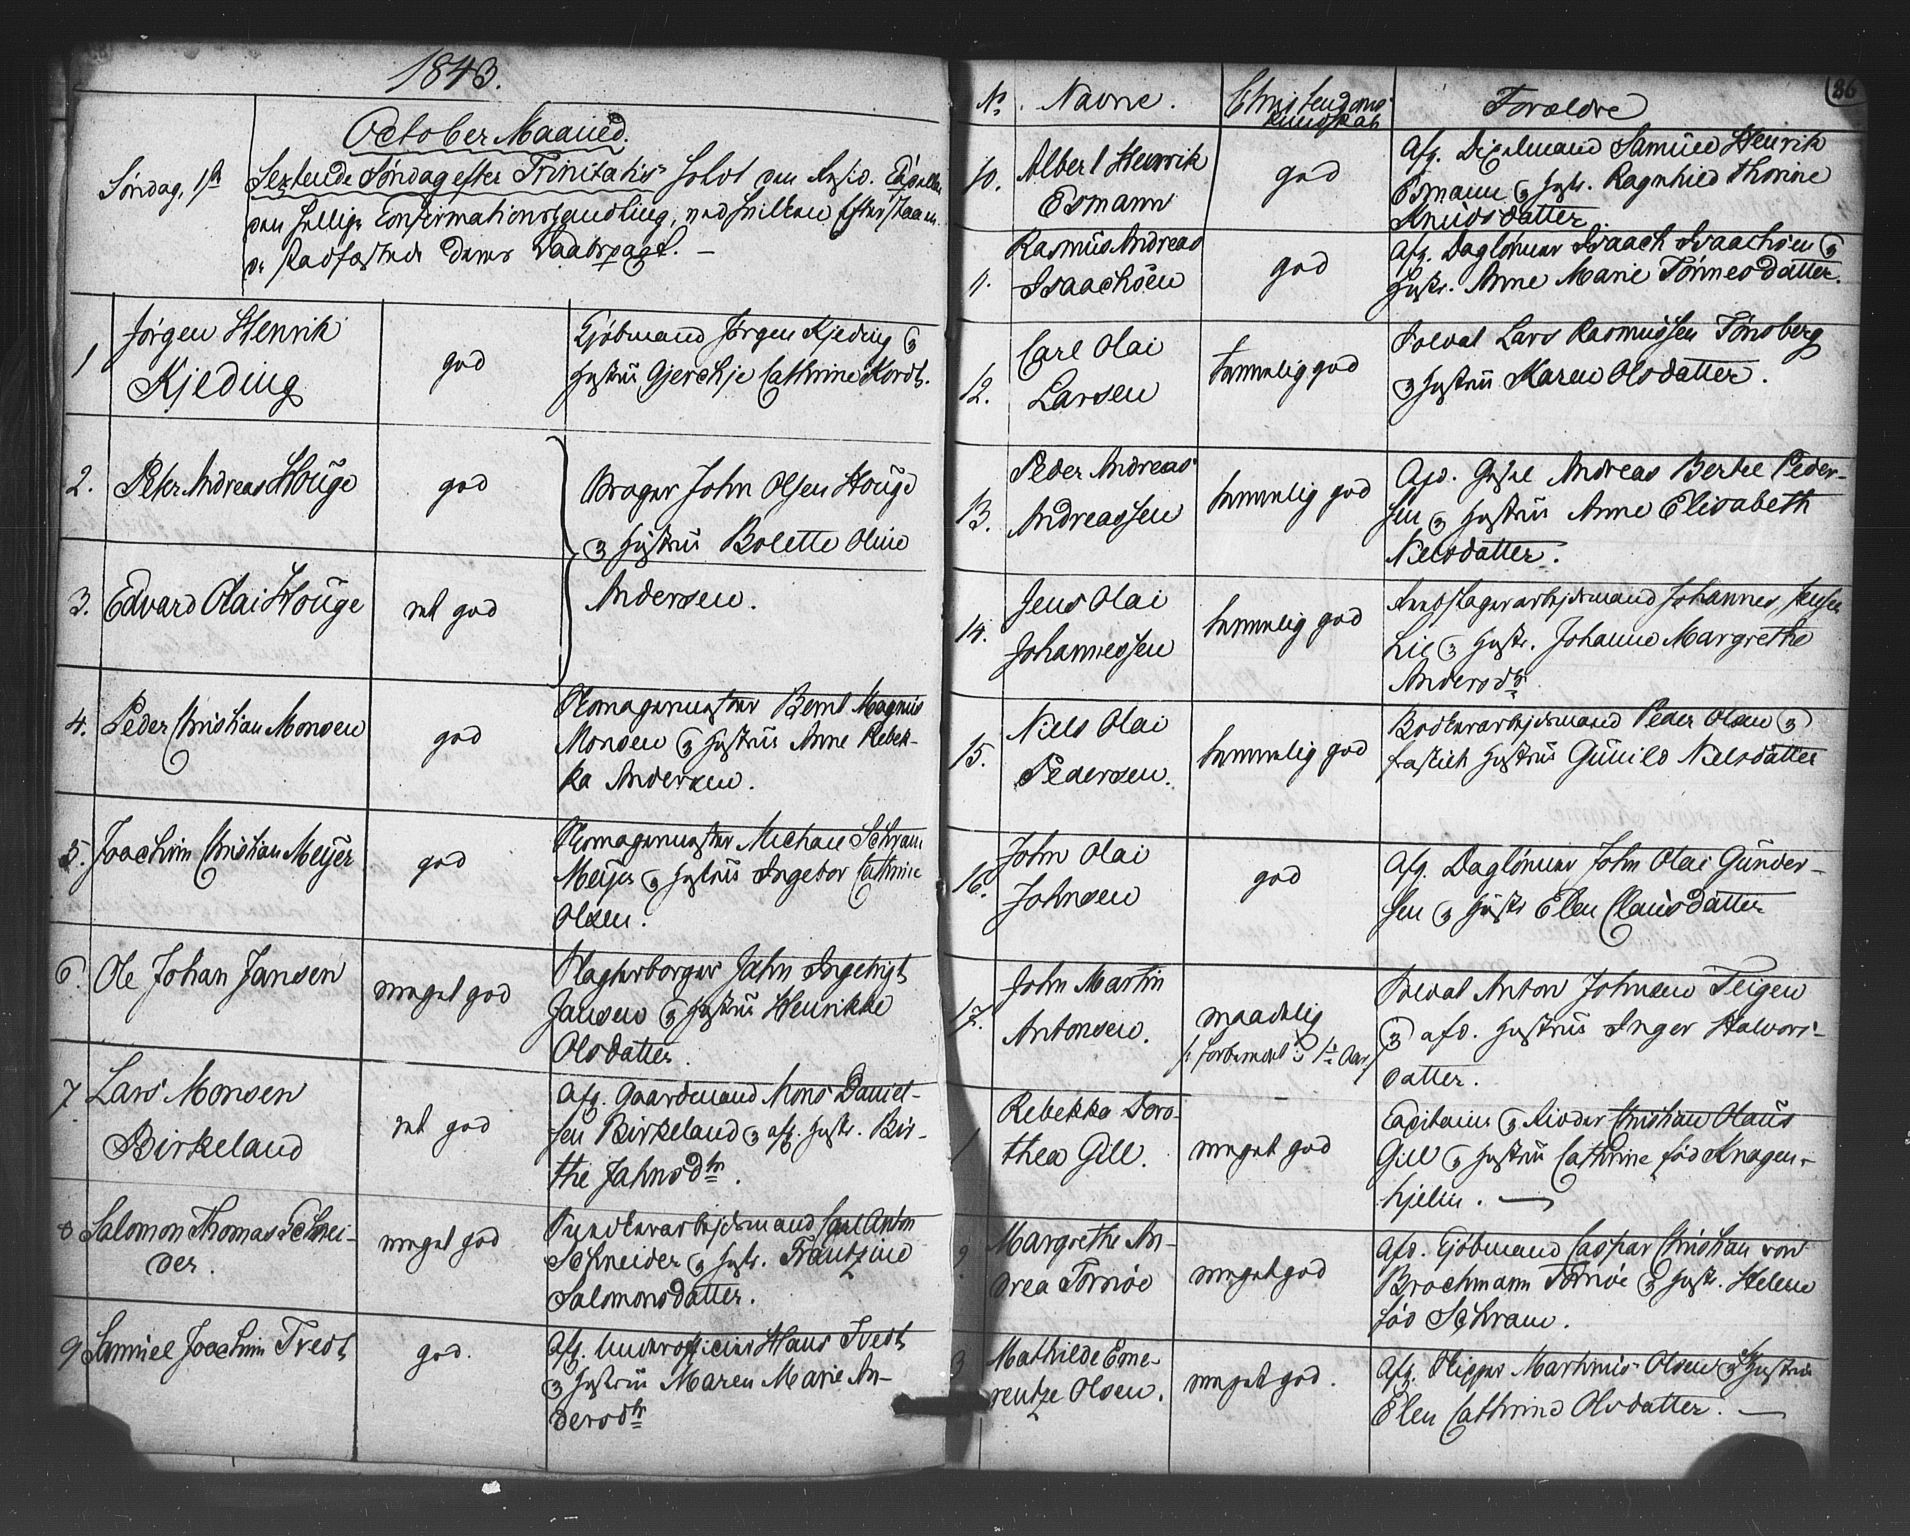 1843.
October Maaned.
Søndag, 1ste Sextende Søndag efter Trinitatis holdt den
den hellige Confirmationshandling, ved hvilken Efterstaaen-
de stadfæstede deres Daabspagt. —
1 Jørgen Henrik
Kjeding
god
Kjøbmand Jørgen Kjeding &
Hustru Gjerchje Cathrine Kordt.
2. Peter Andreas Houge
god
Brager John Olsen Houge
& Hustru Bolette Oline
Andersen.
3. Edvard Olai Houge
ret god
4. Peder Christian Monsen
god
Skomagermester Bernt Magnus
Monsen & Hustru Anne Rebek-
ka Andersen.
5. Joachim Christian Meÿer
god
Skomagermester Michael Schram
Meÿer & Hustru Ingebor Cathrine
Olsen.
6. Ole Johan Jansen
meget god
Slagterborger Jahn Ingebrigt
Jansen & Hustru Henrikke
Olsdatter.
7. Lars Monsen
Birkeland
ret god
Afg. Gaardmand Mons Daniel-
sen Birkeland & afg. Hustr. Bir-
the Jahnsdtr.
8 Salomon Thomas Schnei-
der.
meget god
Carl Anton
Schneider & Hustr. Frantzine
Salomonsdatter.
9 Samuel Joachim Tvedt
god.
Afg. Underofficier Hans Tvedt
& Hustru Maren Marie An-
dersdtr
86
No. Navne. Christendoms
kundskab Forældre
10. Albert Henrik
Esmann
god
Afg. Samuel Henrik
Esmann & Hustr. Ragnhild Thorine
Knudsdatter
11. Rasmus Andreas
Isaachsen
god
Afg. Daglønner Isaach Isaachsen &
Hustr. Anne Marie Tønnesdatter.
12. Carl Olai
Larsen
temmelig god
Soldat Lars Rasmussen Tønsberg
& Hustru Karen Olsdatter.
13. Peder Andreas
Andreassen
temmelig god
Andreas Bertel Peder-
sen & Hustru Anne Elisabeth
Nielsdatter.
14. Jens Olai
Johannessen
temmelig god
Johannes Jensen
Lie & Hustr. Johanne Margrethe
Andersdtr.
15. Niels Olai
Pedersen.
temmelig god
Bødkerarbejdsmand Peder Olsen &
fraskilt Hustru Gunild Nielsdatter
16. John Olai
Johnsen
god
Afg. Daglønner John Olai Gunder-
sen & Hustr Elen Clausdatter
17. John Martin
Antonsen.
maadelig
/: forberedt i 1½ Aar /
Soldat Anton Johnsen Teigen
& afd. Hustru Inger Halvors-
datter.
1 Rebekka Doro-
thea Gill.
meget god
Capitain & Reder Christian Olaus
Gill & Hustru Cathrine fød Knagen-
hjelm. —
2 Margrethe An-
drea Tornøe
meget god
Afd. Kjøbmand Caspar Christian von
Brochmann Tornøe & Hustr. Helene
fød Schram.
3 Mathilde Eme-
rentze Olsen.
meget god.
Afg. Skipper Martinus Olsen & Hustru
Elen Cathrine Olsdatter. —